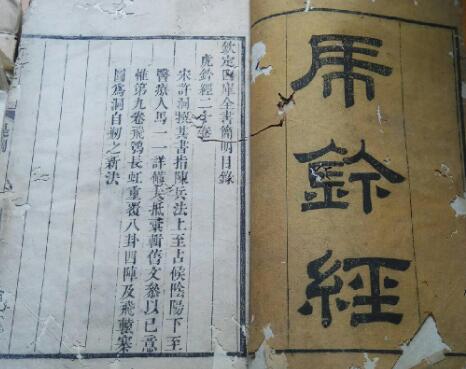 虎鈐經
欽定四庫全書簡明目錄
虎鈐經二十卷
宋許洞撰其書指陳兵法上至占候陰陽下至
醫療人馬一一詳備大抵彙輯舊文參以已意
惟第九卷飛鶚長虹重覆八卦四陣及飛轅寨
圖爲洞自刱之新法